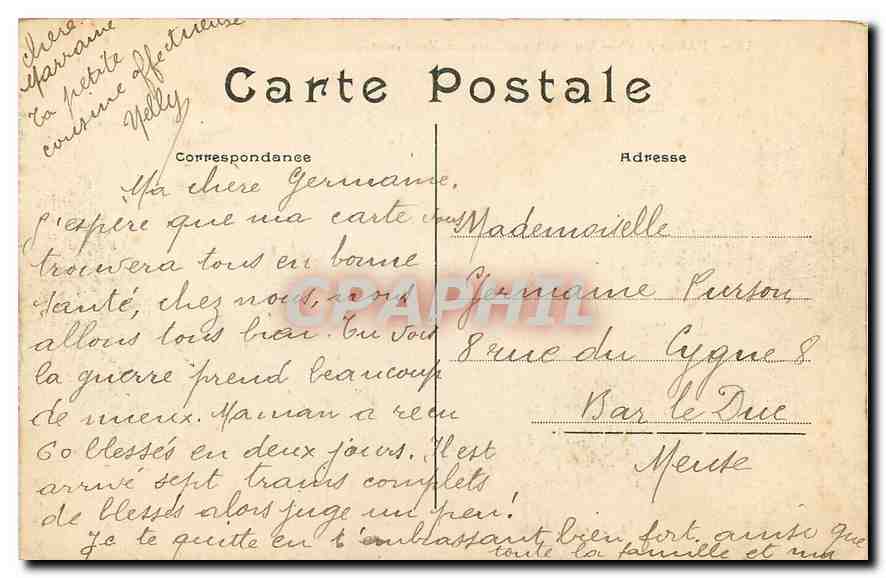 Carte Postale
Correspondance
Adresse
Ma chère Germaine,
J'espère que ma carte vous
trouvera tous en bonne
santé, chez nous, nous
allons tous bien. Tu vois
la guerre prend beaucoup
de mieux. Maman a reçu
60 blessés en deux jours. Il est
arrivé sept trains complets
de blessés alors juge un peu!
Je te quitte en t'embrassant bien fort ainsi que
toute la famille et ma
chère
Marraine
Ta petite
cousine affectueuse
Nelly
Mademoiselle
Germaine Purson
8 rue du Cygne 8
Bar le Duc
Meuse
CPAPHIL